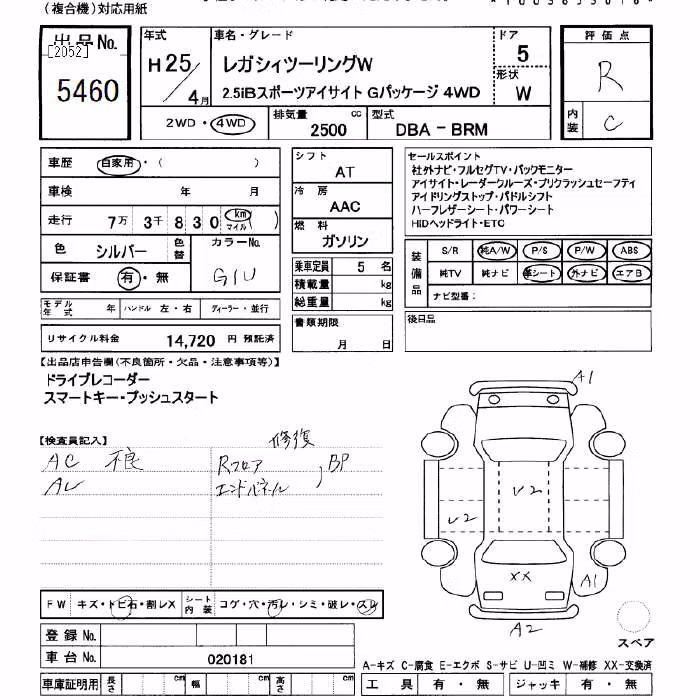 (複合機)対応用紙
出品No.
[2052]
5460
年式
H25/4月
車名・グレード
レガシィツーリングW
2.5iBスポーツアイサイト Gパッケージ 4WD
ドア
5
形状
W
評価点
R
内装
C
2WD・4WD
排気量
2500 cc
型式
DBA-BRM
車歴 自家用・( )
車検 年 月
走行 7万 3千 830 km マイル ( )
色 シルバー 色替 カラーNo.
G1U
保証書 有・無
モデル年式 年 ハンドル 左・右 ディーラー・並行
リサイクル料金 14,720 円 預託済
シフト
AT
冷房
AAC
燃料
ガソリン
乗車定員 5 名
積載量 kg
総重量 kg
書類期限
月 日
セールスポイント
社外ナビ・フルセグTV・バックモニター
アイサイト・レーダークルーズ・プリクラッシュセーフティ
アイドリングストップ・パドルシフト
ハーフレザーシート・パワーシート
HIDヘッドライト・ETC
装備品
S/R 純A/W P/S P/W ABS
純TV 純ナビ 革シート 外ナビ エアB
ナビ型番:
後日品
【出品店申告欄(不良箇所・欠品・注意事項等)】
ドライブレコーダー
スマートキー・プッシュスタート
【検査員記入】
修復
AC 不良
Rフロア
エンドパネル
BP
A1
V2
V2
XX
A1
A2
スペア
FW キズ・トビ石・割レX シート内装 コゲ・穴・汚レ・シミ・破レ・スレ
登録No.
車台No. 020181
車庫証明用 長さ cm 幅 cm 高さ cm
A-キズ C-腐食 E-エクボ S-サビ U-凹ミ W-補修 XX-交換済
工具 有・無 ジャッキ 有・無